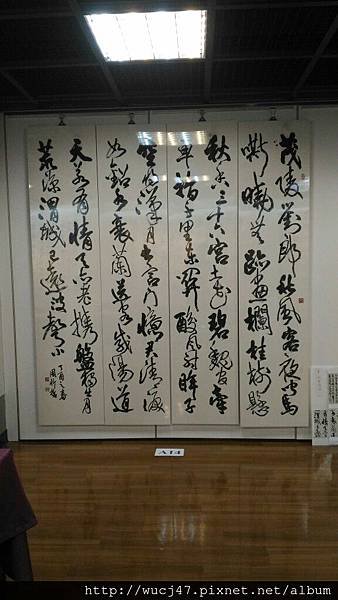 茂陵劉郎秋風客夜聞馬
嘶曉無跡畫欄桂樹懸
秋香三十六宮土花碧魏官牽
車指千里東關酸風射眸子
空將漢月出宮門憶君清淚
如鉛水衰蘭送客咸陽道
天若有情天亦老攜盤獨出月
荒涼渭城已遠波聲小
丁酉之春
A14
http://wucj47.pixnet.net/album